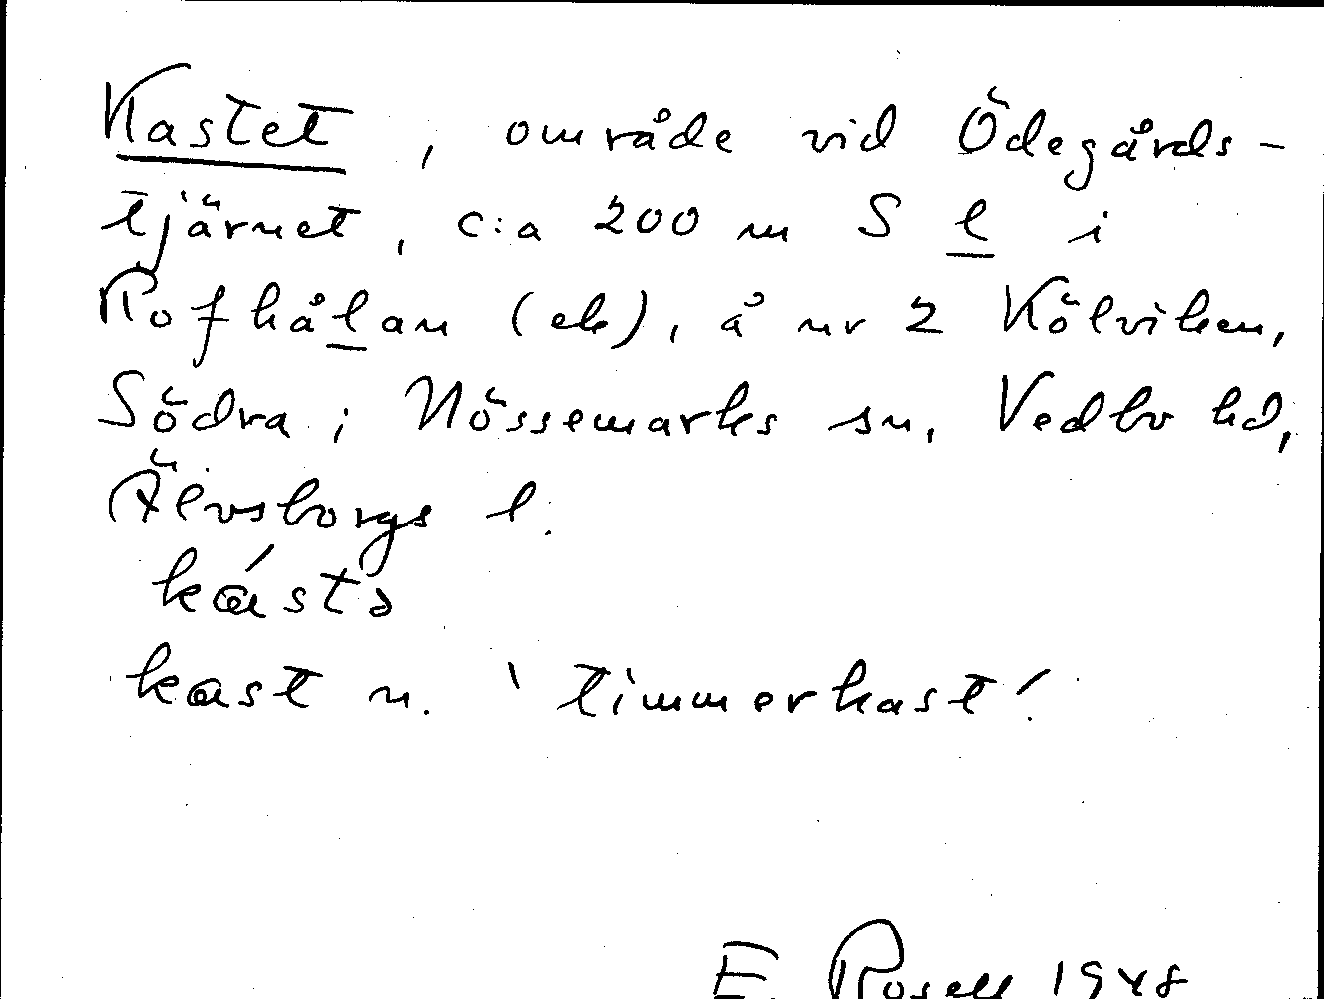 Kastet, område vid Ödegårds-
tjärnet, c:a 200 m S l i
Rofhålan (ek), å nr 2 Kölviken,
Södra i Nössemarks sn, Vedbo hd,
Älvsborgs l.
kást
kast n. 'timmerkast'.
E. Rosell 1948